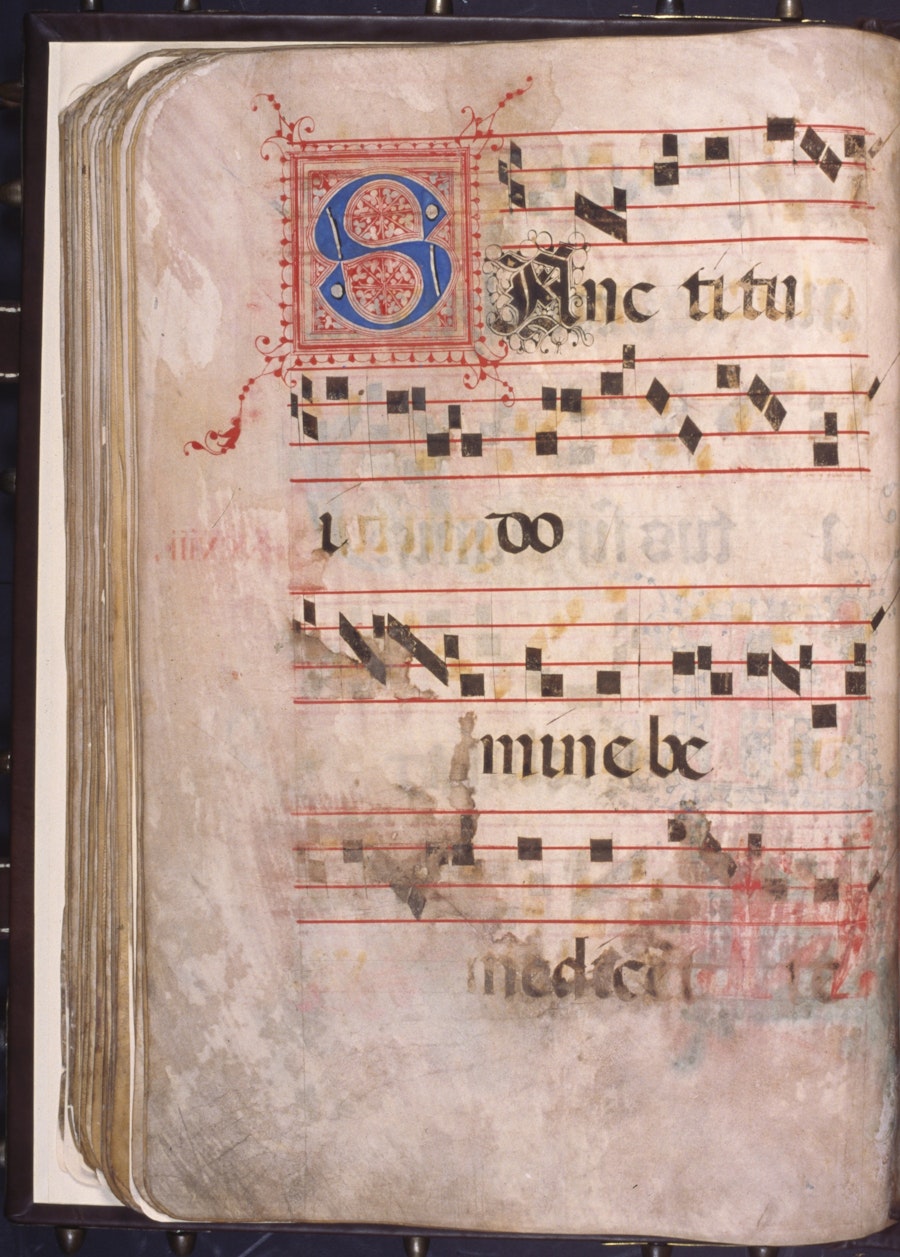 SAnc ti tu
i do
mine be
nedicent